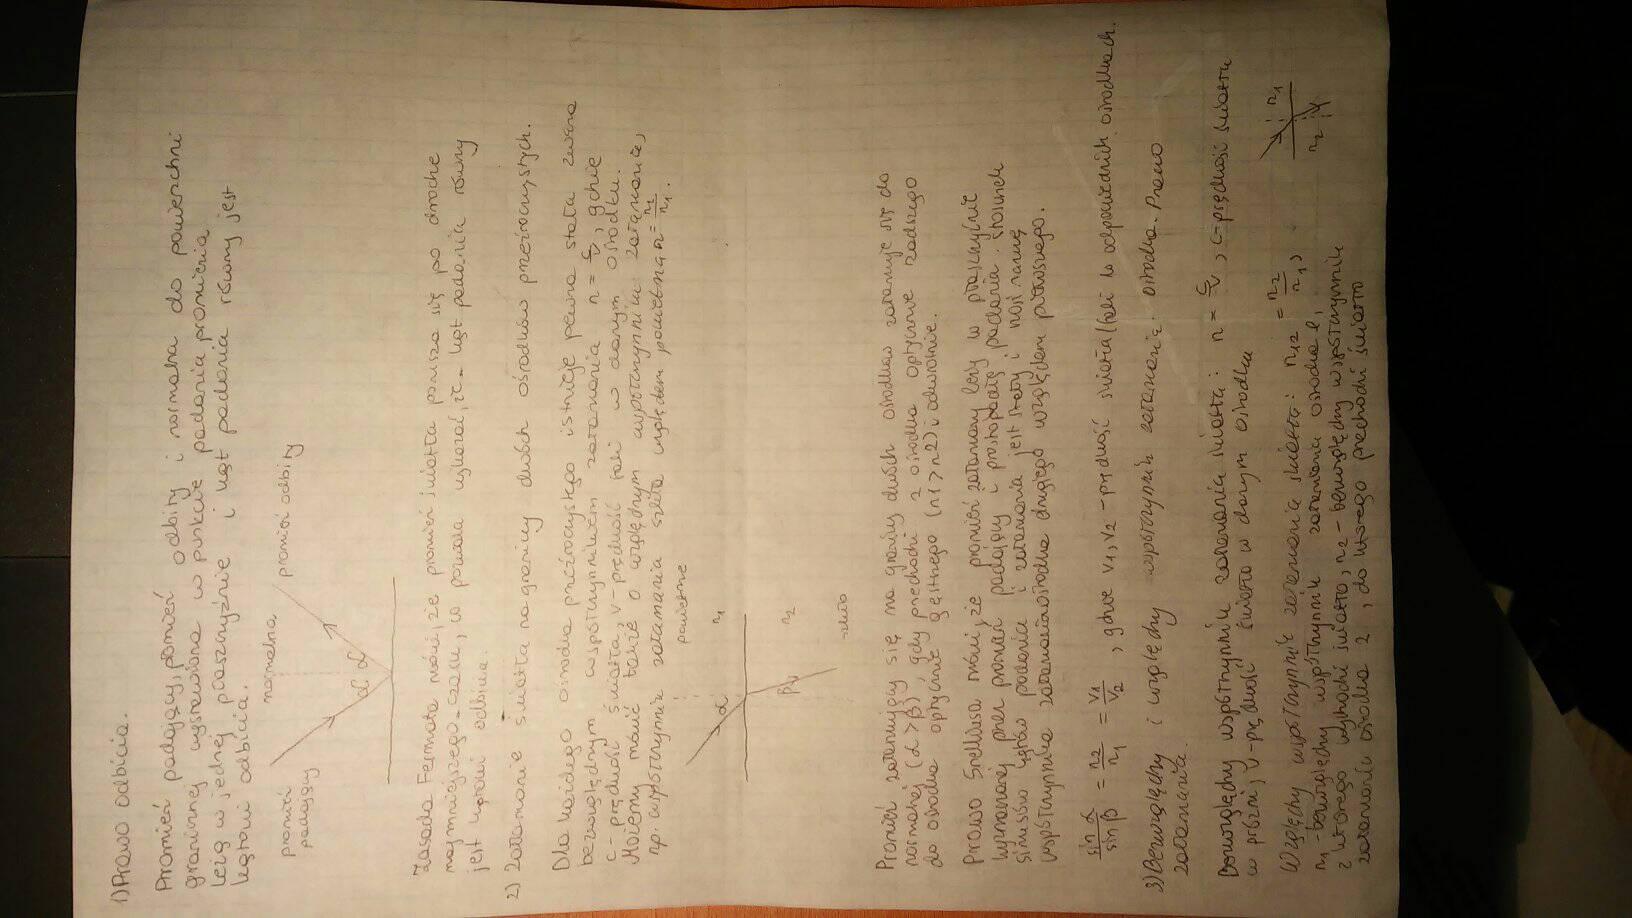 1) Prawo odbicia.
Promień padający, promień odbity i normalna do powierzchni
granicznej wystawiona w punkcie padania promienia
leżą w jednej płaszczyźnie i kąt padania równy jest
kątowi odbicia.
normalna
promień odbity
promień
padający
α α
Zasada Fermata mówi, że promień światła porusza się po drodze
najmniejszego czasu, co pozwala wykazać, że kąt padania równy
jest kątowi odbicia.
2) Załamanie światła na granicy dwóch ośrodków przeźroczystych.
Dla każdego ośrodka przeźroczystego istnieje pewna stała zwana
bezwzględnym współczynnikiem załamania n = c/v, gdzie
c - prędkość światła, v - prędkość fali w danym ośrodku.
Możemy mówić także o względnym współczynniku załamania,
np. współczynnik załamania szkła względem powietrza n = n2/n1.
powietrze
α n1
β n2
szkło
Promień załamujący się na granicy dwóch ośrodków załamuje się do
normalnej (α > β), gdy przechodzi z ośrodka optycznie rzadszego
do ośrodka optycznie gęstszego (n1 > n2) i odwrotnie.
Prawo Snelliusa mówi, że promień załamany leży w płaszczyźnie
wyznaczonej przez promień padający i prostopadłą padania. Stosunek
sinusów kątów padania i załamania jest stały i nosi nazwę
współczynnika załamania ośrodka drugiego względem pierwszego.
sin α / sin β = n2/n1 = v1/v2, gdzie v1, v2 - prędkość światła (fali) w odpowiednich ośrodkach.
3) Bezwzględny i względny współczynnik załamania ośrodka. Prawo
załamania.
Bezwzględny współczynnik załamania światła: n = c/v, c - prędkość światła
w próżni, v - prędkość światła w danym ośrodku
Względny współczynnik załamania światła: n12 = n2/n1,
n1 - bezwzględny współczynnik załamania ośrodka 1,
z którego wychodzi światło, n2 - bezwzględny współczynnik
załamania ośrodka 2, do którego przechodzi światło
n1
n2